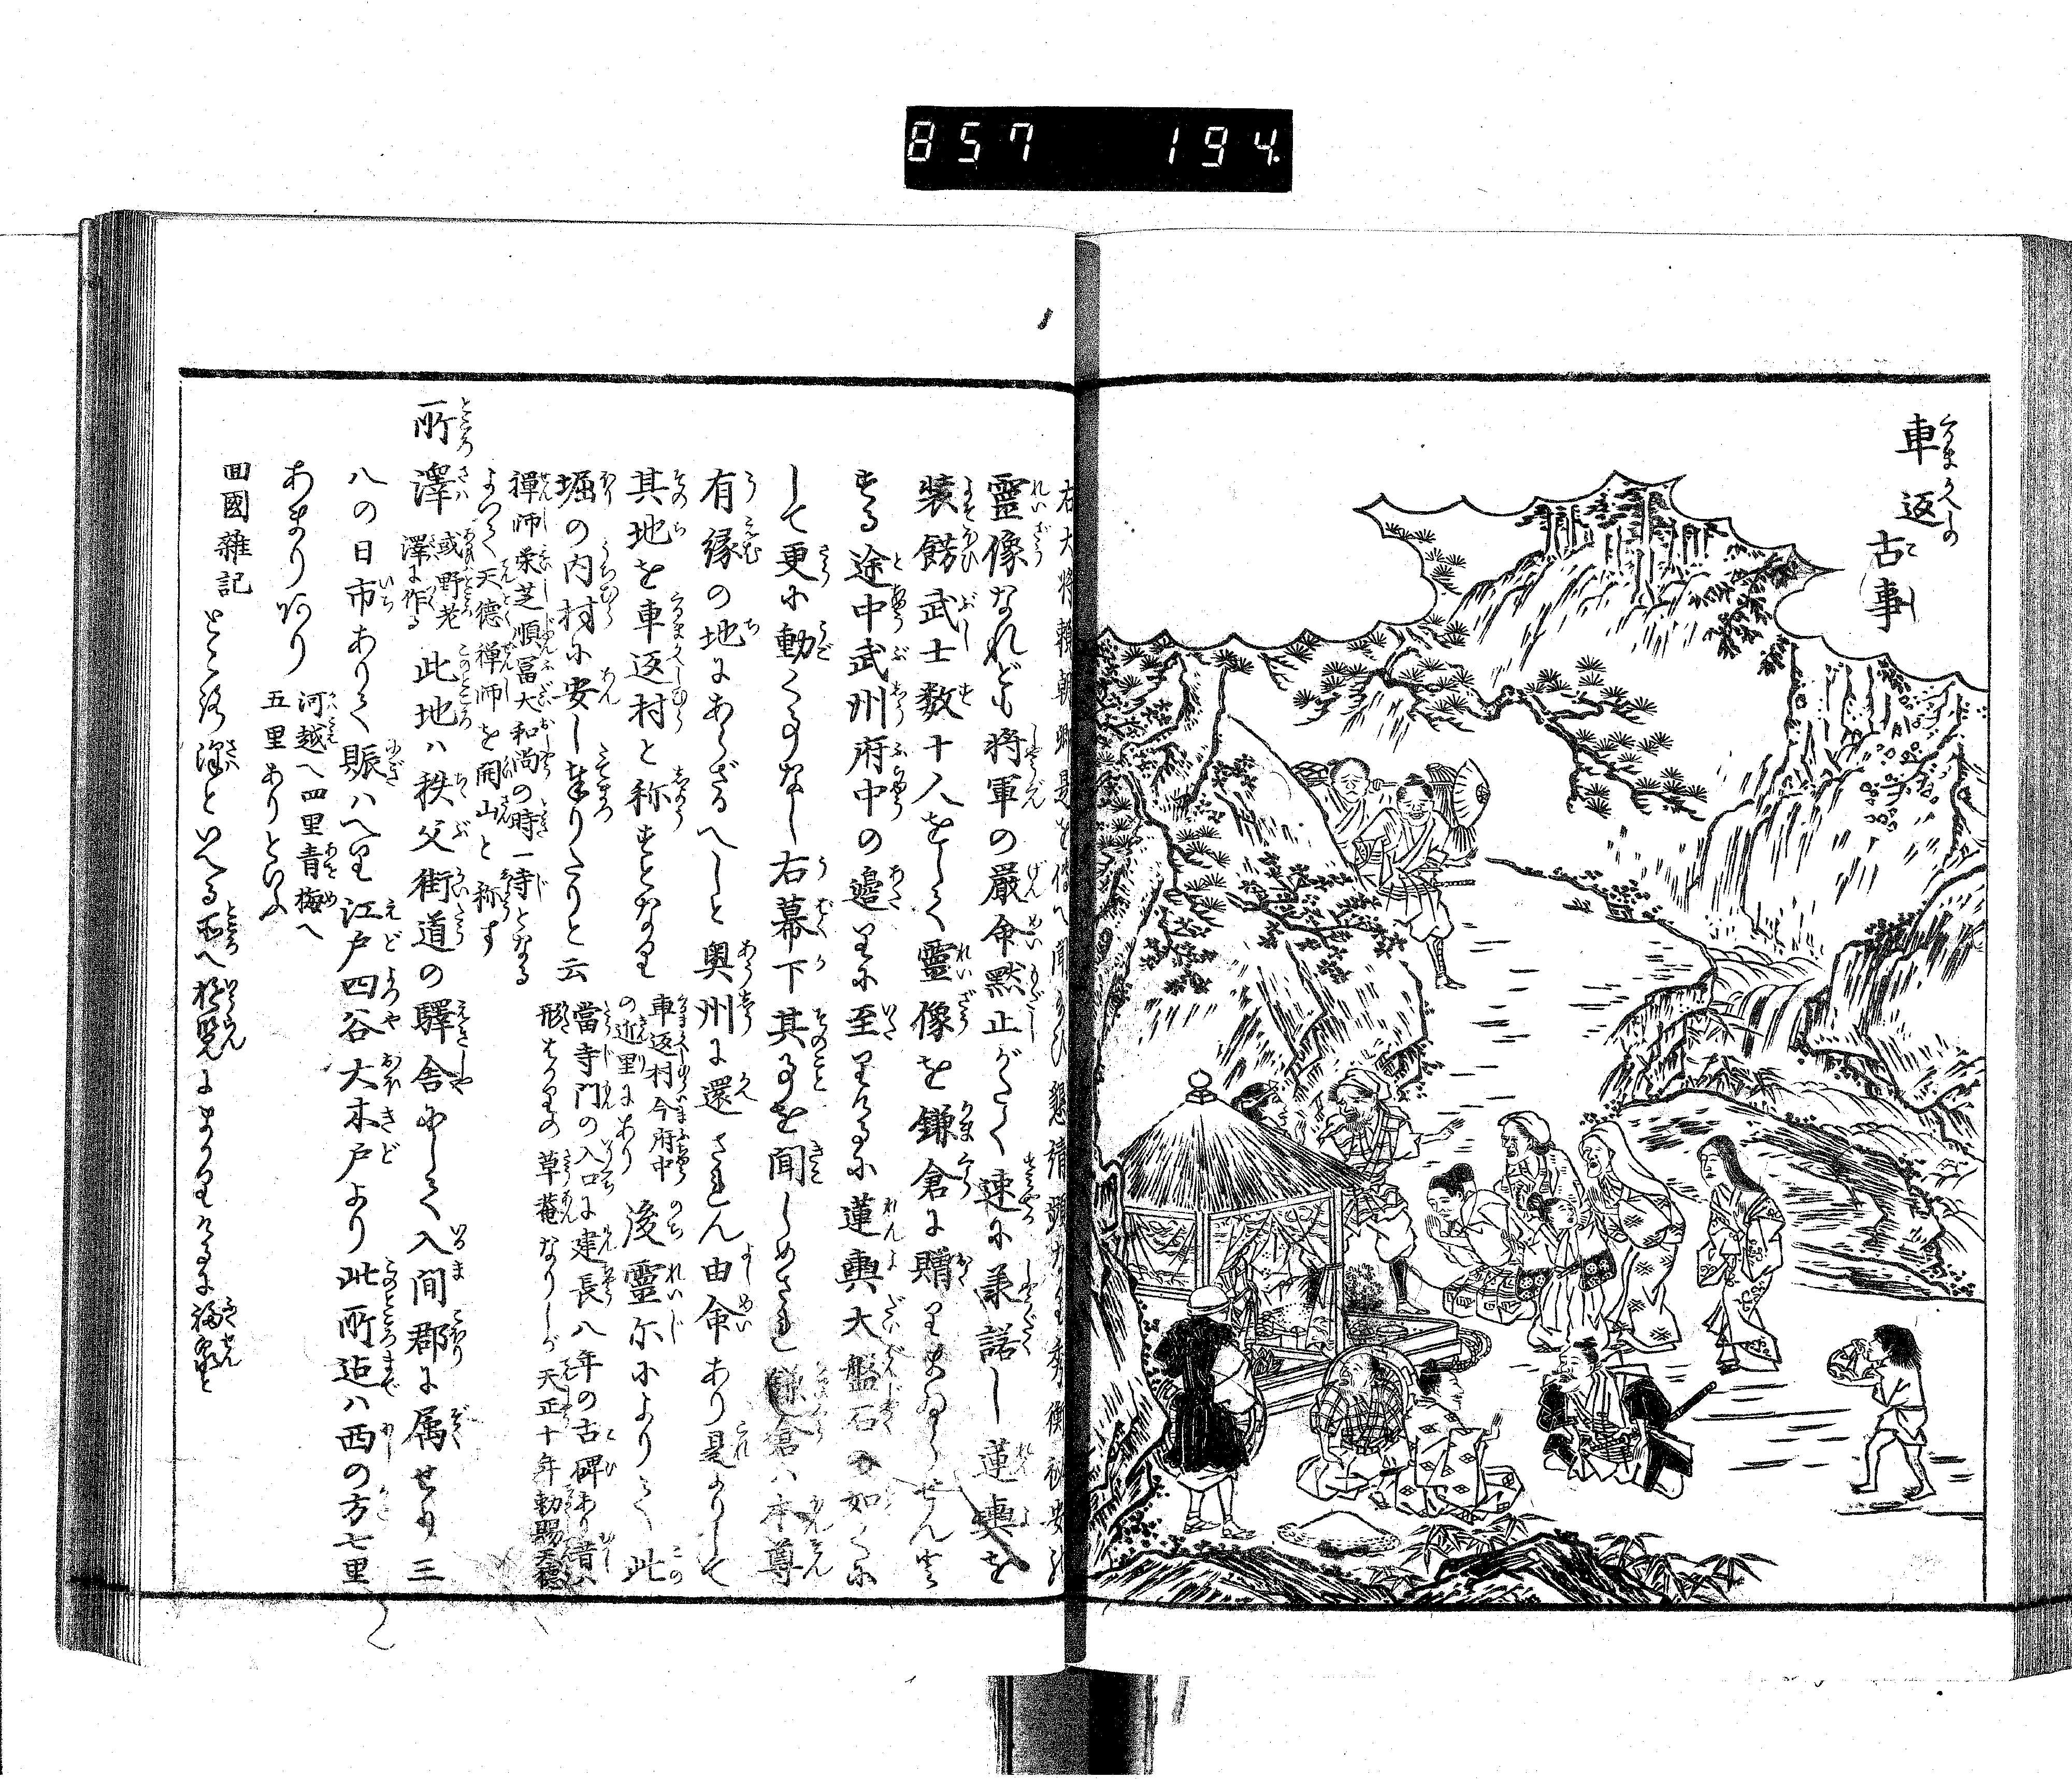 857 194.
車返
古事
右大将頼朝卿是を傳へ聞
靈像なれども将軍の嚴命默止がたく速に兼諾し蓮輿を
装餝武士数十人をして靈像を鎌倉に贈りまゐらせん
する途中武州府中の邉りに至りけるに蓮輿大盤石の如くに
して更に動く事なし右幕下其事を聞しめされ鎌倉ハ本尊
有縁の地にあらざるへしと奥州に還されん由命あり是よりして
其地を車返村と称することなり
車返村今府中
の近里にあり
後靈示によりて此
堀の内村に安し奉りたりと云
當寺門の入口に建長八年の古碑あり昔ハ
形はかりの草菴なりしが天正十年勅賜天徳
禅師柔芝順冨大和尚の時一寺となる
よつて天徳禅師を開山と称す
所澤
或野老
澤に作る
此地ハ秩父街道の驛舎にして入間郡に属せり三
八の日市ありて賑ハへり江戸四谷大木戸より此所迠ハ西の方七里
あまりあり
河越へ四里青梅へ
五里ありといふ
回國雜記
ところ澤といへる所へ遊覧にまかりけるに福泉と